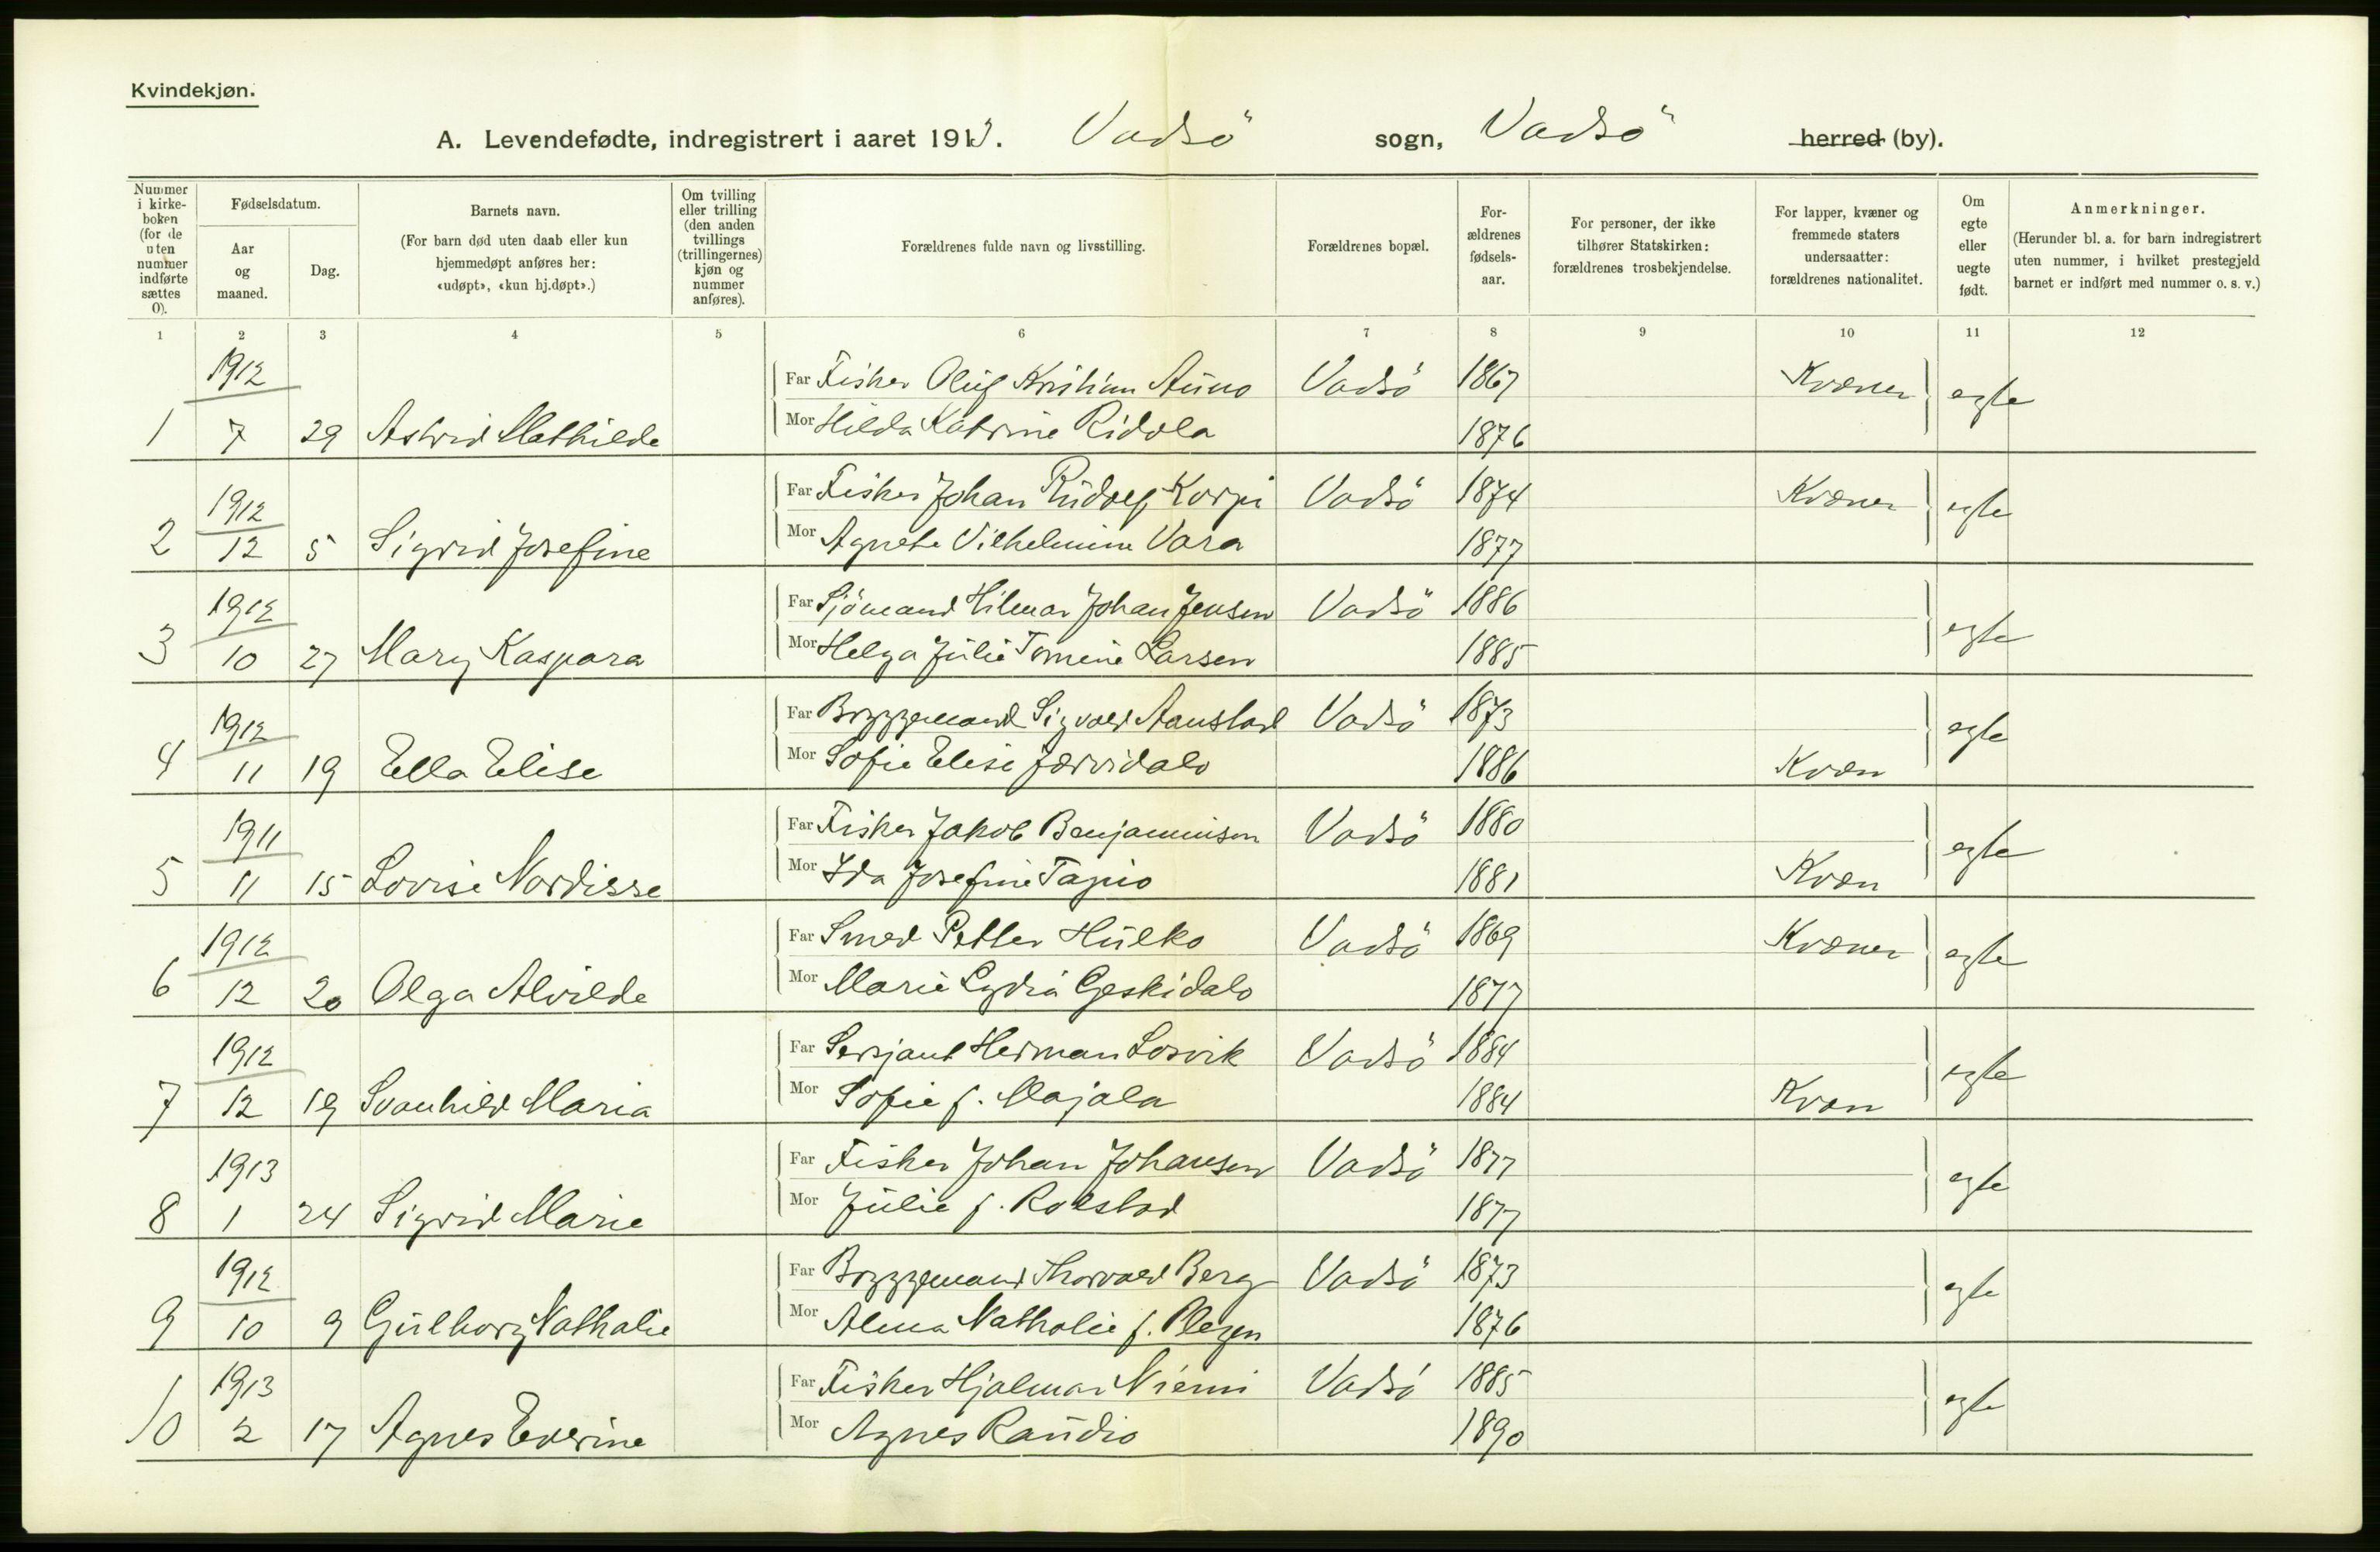 Kvindekjøn.
A. Levendefødte, indregistrert i aaret 1913. Vadsö sogn, Vadsö herred (by).
Nummer i kirkeboken (for de uten nummer indførte sættes 0).
Fødselsdatum.
Aar og maaned.
Dag.
Barnets navn.
(For barn død uten daab eller kun hjemmedøpt anføres her: «udøpt», «kun hj.døpt».)
Om tvilling eller trilling (den anden tvillings (trillingernes) kjøn og nummer anføres).
Forældrenes fulde navn og livsstilling.
Forældrenes bopæl.
Forældrenes fødselsaar.
For personer, der ikke tilhører Statskirken: forældrenes trosbekjendelse.
For lapper, kvæner og fremmede staters undersaatter: forældrenes nationalitet.
Om egte eller uegte født.
Anmerkninger.
(Herunder bl. a. for barn indregistrert uten nummer, i hvilket prestegjeld barnet er indført med nummer o. s. v.)
1 2 3 4 5 6 7 8 9 10 11 12
1912 Far Fisker Oluf Kristian Auno Vadsö 1867 Kvæner egte
1 7 29 Astrid Mathilde Mor Hilda Katrine Ridola 1876
1912 Far Fisker Johan Rudolf Korpi Vadsö 1874 Kvæner egte
2 12 5 Sigrid Josefine Mor Agnete Vilhelmine Vara 1877
1912 Far Sjömand Hilmar Johan Jensen Vadsö 1886 egte
3 10 27 Mary Kaspara Mor Helga Julie Tomine Larsen 1885
1912 Far Bryggemand Sigvald Aanstad Vadsö 1873 egte
4 11 19 Ella Elise Mor Sofie Elise Jærvidalo 1886 Kvæn
1911 Far Fisker Jakob Benjaminsen Vadsö 1880 egte
5 11 15 Lovise Nordisse Mor Ida Josefine Tapio 1881 Kvæn
1912 Far Smed Petter Hulko Vadsö 1869 Kvæner egte
6 12 20 Olga Alvilde Mor Marie Lydia Geskidalo 1877
1912 Far Sersjant Herman Losvik Vadsö 1884 egte
7 12 19 Svanhild Maria Mor Sofie f. Majala 1884 Kvæn
1913 Far Fisker Johan Johansen Vadsö 1877 egte
8 1 24 Sigrid Marie Mor Julie f. Rolstad 1877
1912 Far Bryggemand Thorvald Berg Vadsö 1873 egte
9 10 9 Gulborg Nathalie Mor Alma Nathalie f. 1876
1913 Far Fisker Hjalmar Niemi Vadsö 1885 egte
10 2 17 Agnes Everine Mor Agnes Raudio 1890